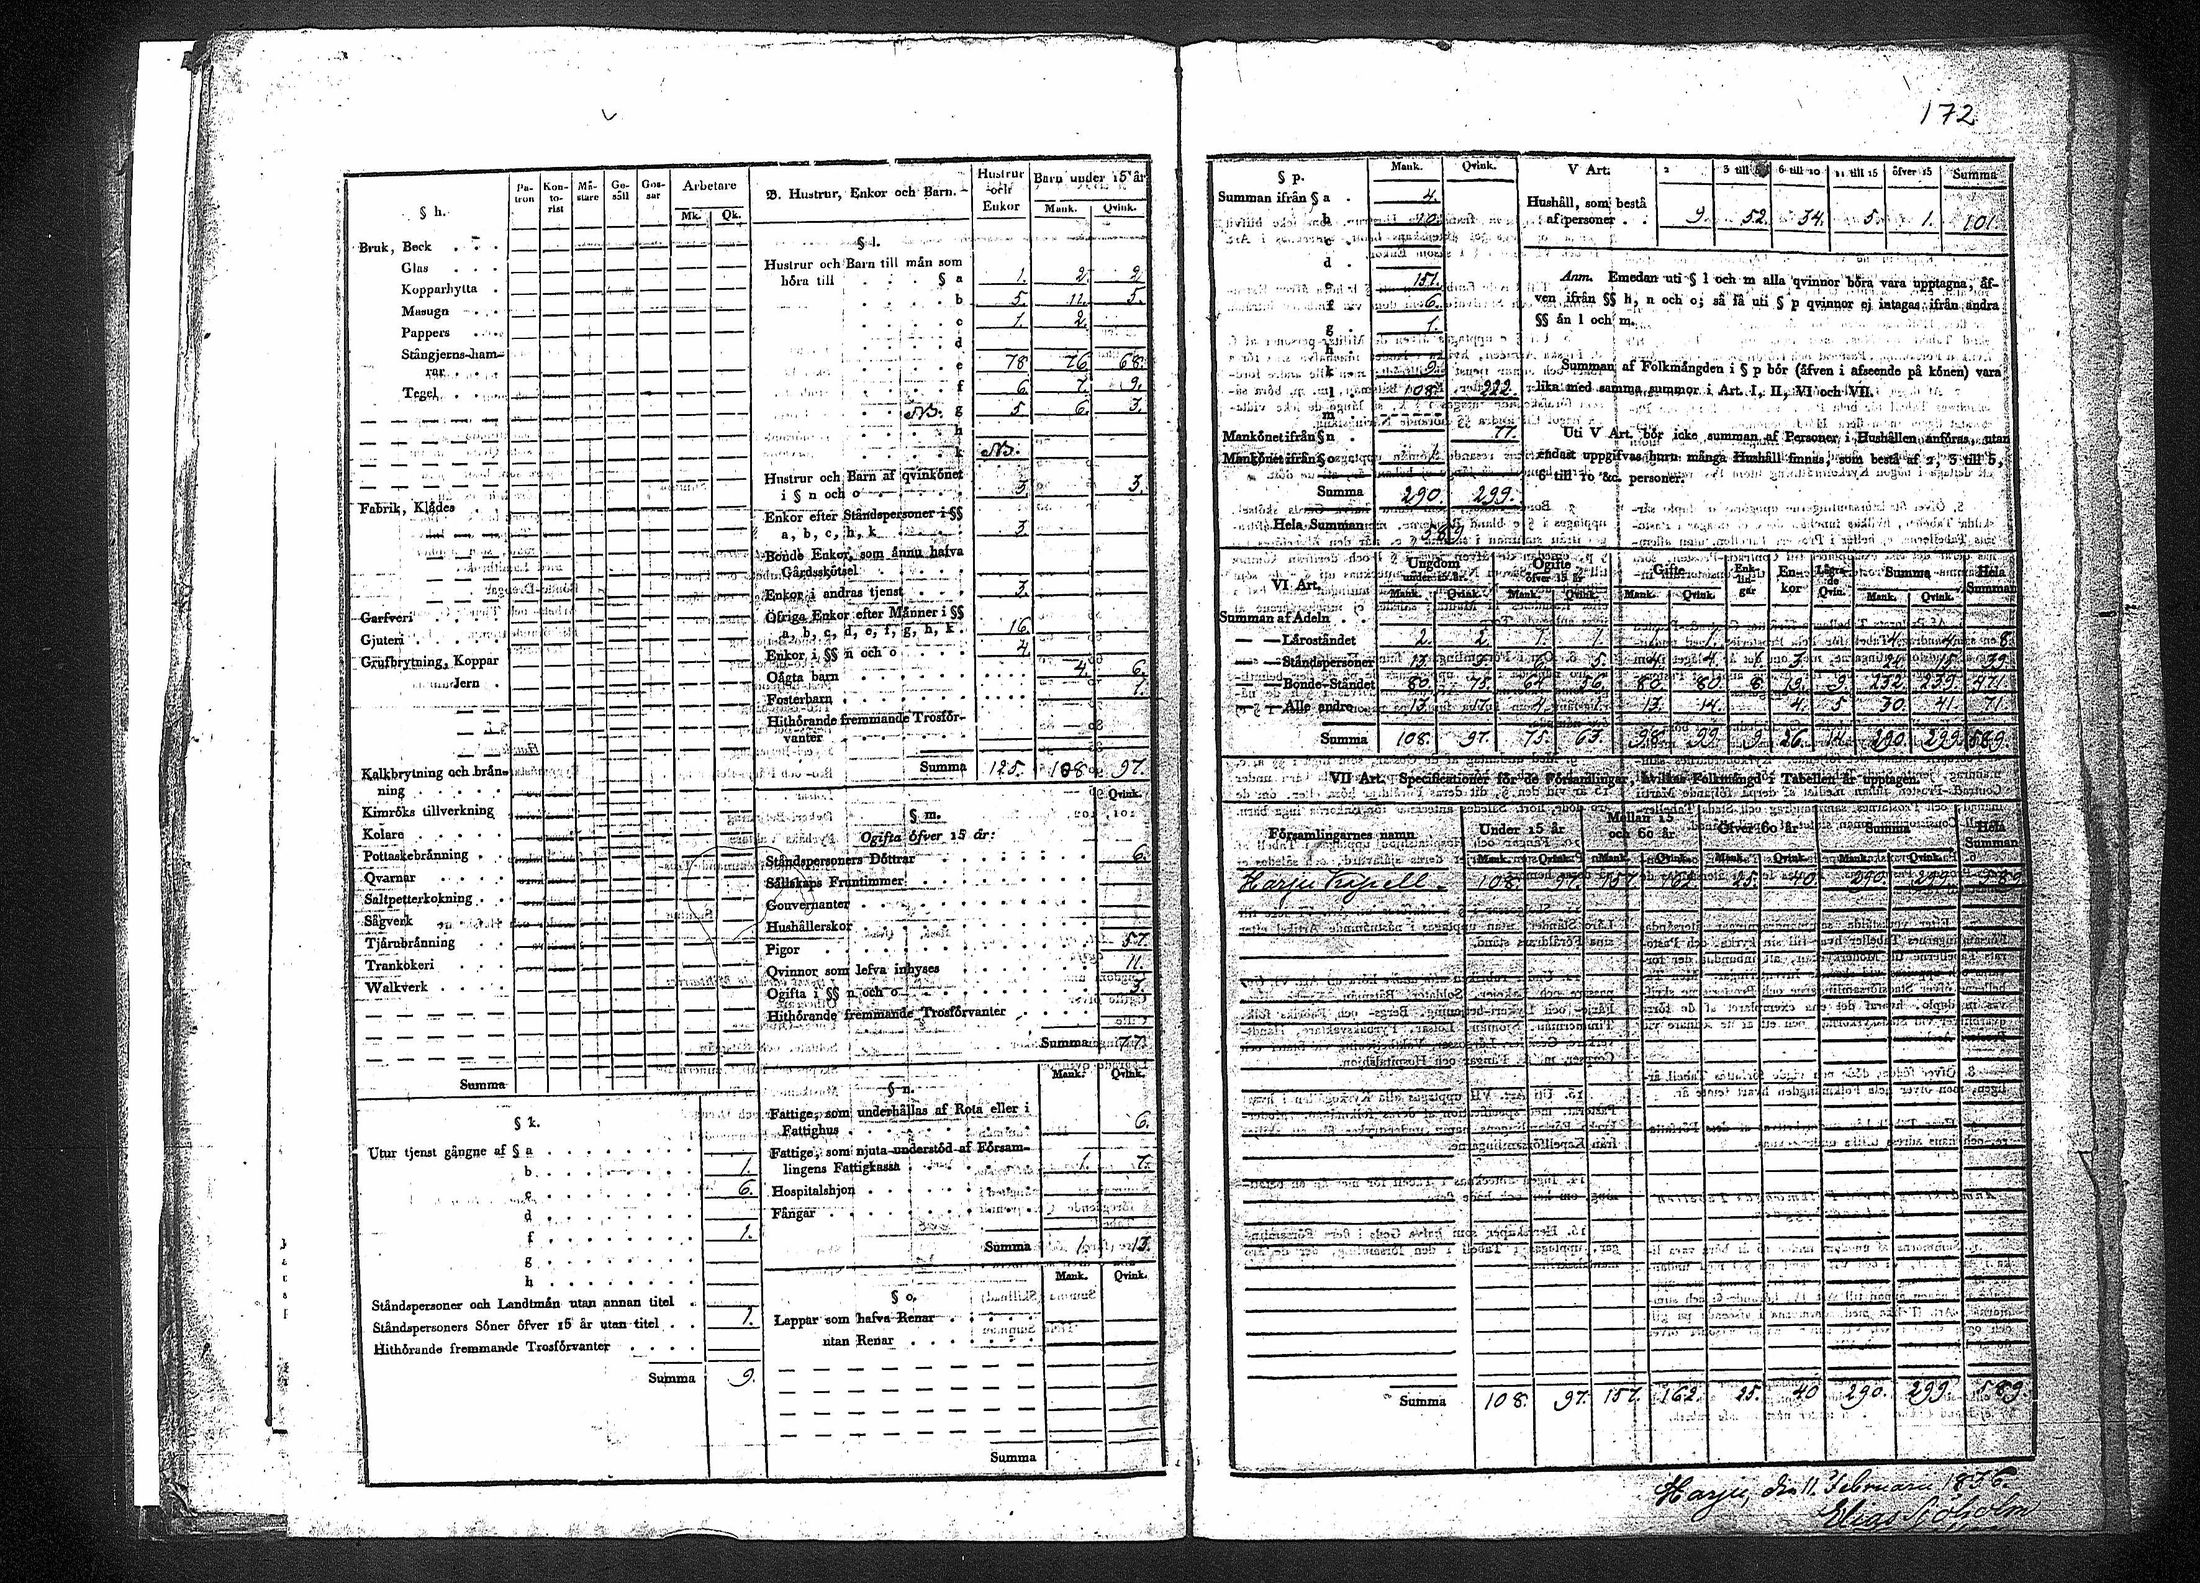 172
§ h.
Pa-tron Kon-to-rist Mä-stare Ge-säll Gos-sar Arbetare
Mk. Qk.
Bruk, Beck
Glas
Kopparhytta
Masugn
Pappers
Stångjerns-ham-
rar
Tegel
Fabrik, Klädes
Garfveri
Gjuteri
Grufbrytning, Koppar
Jern
Kalkbrytning och brän-
ning
Kimröks tillverkning
Kolare
Pottaskebränning
Qvarnar
Saltpetterkokning
Sågverk
Tjärubränning
Trankokeri
Walkverk
Summa
§ k.
Utur tjenst gångne af § a
b 1.
c 6.
d
f 1.
g
h
Ståndspersoner och Landtmän utan annan titel
Ståndspersoners Söner öfver 15 år utan titel 1.
Hithörande fremmande Trosförvanter
Summa 9.
B. Hustrur, Enkor och Barn.
Hustrur och Enkor Barn under 15 år
Mank. Qvink.
§ l.
Hustrur och Barn till män som
höra till § a 1. 2. 2.
b 5. 11. 5.
c 1. 2.
d
e 78 76 68.
f 6. 7. 9.
NB. g 5 6. 3.
h
k NB.
Hustrur och Barn af qvinkönet
i § n och o 3. 3.
Enkor efter Ståndspersoner i §§
a, b, c, h, k 3.
Bonde Enkor, som ännu hafva
Gårdsskötsel
Enkor i andras tjenst 3.
Öfriga Enkor efter Männer i §§
a, b, c, d, e, f, g, h, k 16.
Enkor i §§ n och o 4.
Oägta barn 4. 6.
Fosterbarn 1.
Hithörande fremmande Trosför-
vanter
Summa 125. 108 97.
Qvink.
§ m.
Ogifta öfver 15 år:
Ståndspersoners Döttrar 6.
Sällskaps Fruntimmer
Gouvernanter
Hushållerskor
Pigor 57.
Qvinnor som lefva inhyses 11.
Ogifta i §§ n och o 3.
Hithörande fremmande Trosförvanter
Summa 77.
Mank. Qvink.
§ n.
Fattige, som underhållas af Rota eller i
Fattighus 6.
Fattige, som njuta understöd af Försam-
lingens Fattigkassa 1. 7.
Hospitalshjon
Fångar
Summa 1. 13.
Mank. Qvink.
§ o.
Lappar som hafva Renar
utan Renar
Summa
§ p. Mank. Qvink.
Summan ifrån § a 4.
b 10.
c
d
e 151.
f 6.
g 1.
h
k 9.
l 108. 222.
m 77.
Mankönet ifrån § n 1.
Mankönet ifrån § o
Summa 290. 299.
Hela Summan 589.
V Art. 2 3 till 5 6 till 10 11 till 15 öfver 15 Summa
Hushåll, som bestå
af personer 9. 52. 34. 5. 1. 101.
Anm. Emedan uti § l och m alla qvinnor böra vara upptagna, äf-
ven ifrån §§ h, n och o; så få uti § p qvinnor ej intagas ifrån andra
§§ än l och m.
Summan af Folkmängden i § p bör (äfven i afseende på könen) vara
lika med samma summor i Art. I, II, VI och VII.
Uti V Art. bör icke summan af Personer i Hushållen anföras, utan
endast uppgifvas huru många Hushåll finnas, som bestå af 2, 3 till 5,
6 till 10 &c. personer.
VI Art. Ungdom under 15 år. Ogifte öfver 15 år Gifte Enk-lin-gar En-kor Lägra-de Qvin. Summa Hela Summan
Mank. Qvink. Mank. Qvink. Mank. Qvink. Mank. Qvink.
Summan af Adeln
— — Läroståndet 2. 2. 1. 1. 1. 1. 4. 4. 8.
— — Ståndspersoner 13. 3. 6. 5. 4. 4. 1. 3. 24. 15. 39.
— — Bonde-Ståndet 80. 75. 64. 56. 80. 80. 8. 19. 9. 232. 239. 471.
— — Alle andre 13. 17. 4. 1. 13. 14. 4. 5 30. 41. 71.
Summa 108. 97. 75. 63. 98. 99. 9. 26. 14. 290. 299. 589.
VII Art. Specificationer för de Församlingar, hvilkas Folkmängd i Tabellen är upptagen.
Församlingarnes namn Under 15 år Mellan 15 och 60 år Öfver 60 år Summa Hela Summan
Mank. Qvink. Mank. Qvink. Mank. Qvink. Mank. Qvink.
Harju Kapell 108. 97. 157. 162. 25. 40 290. 299. 589
Summa 108. 97. 157. 162. 25. 40 290. 299. 589.
Harju, den 11. Februarii 1836.
Elias Sjöholm